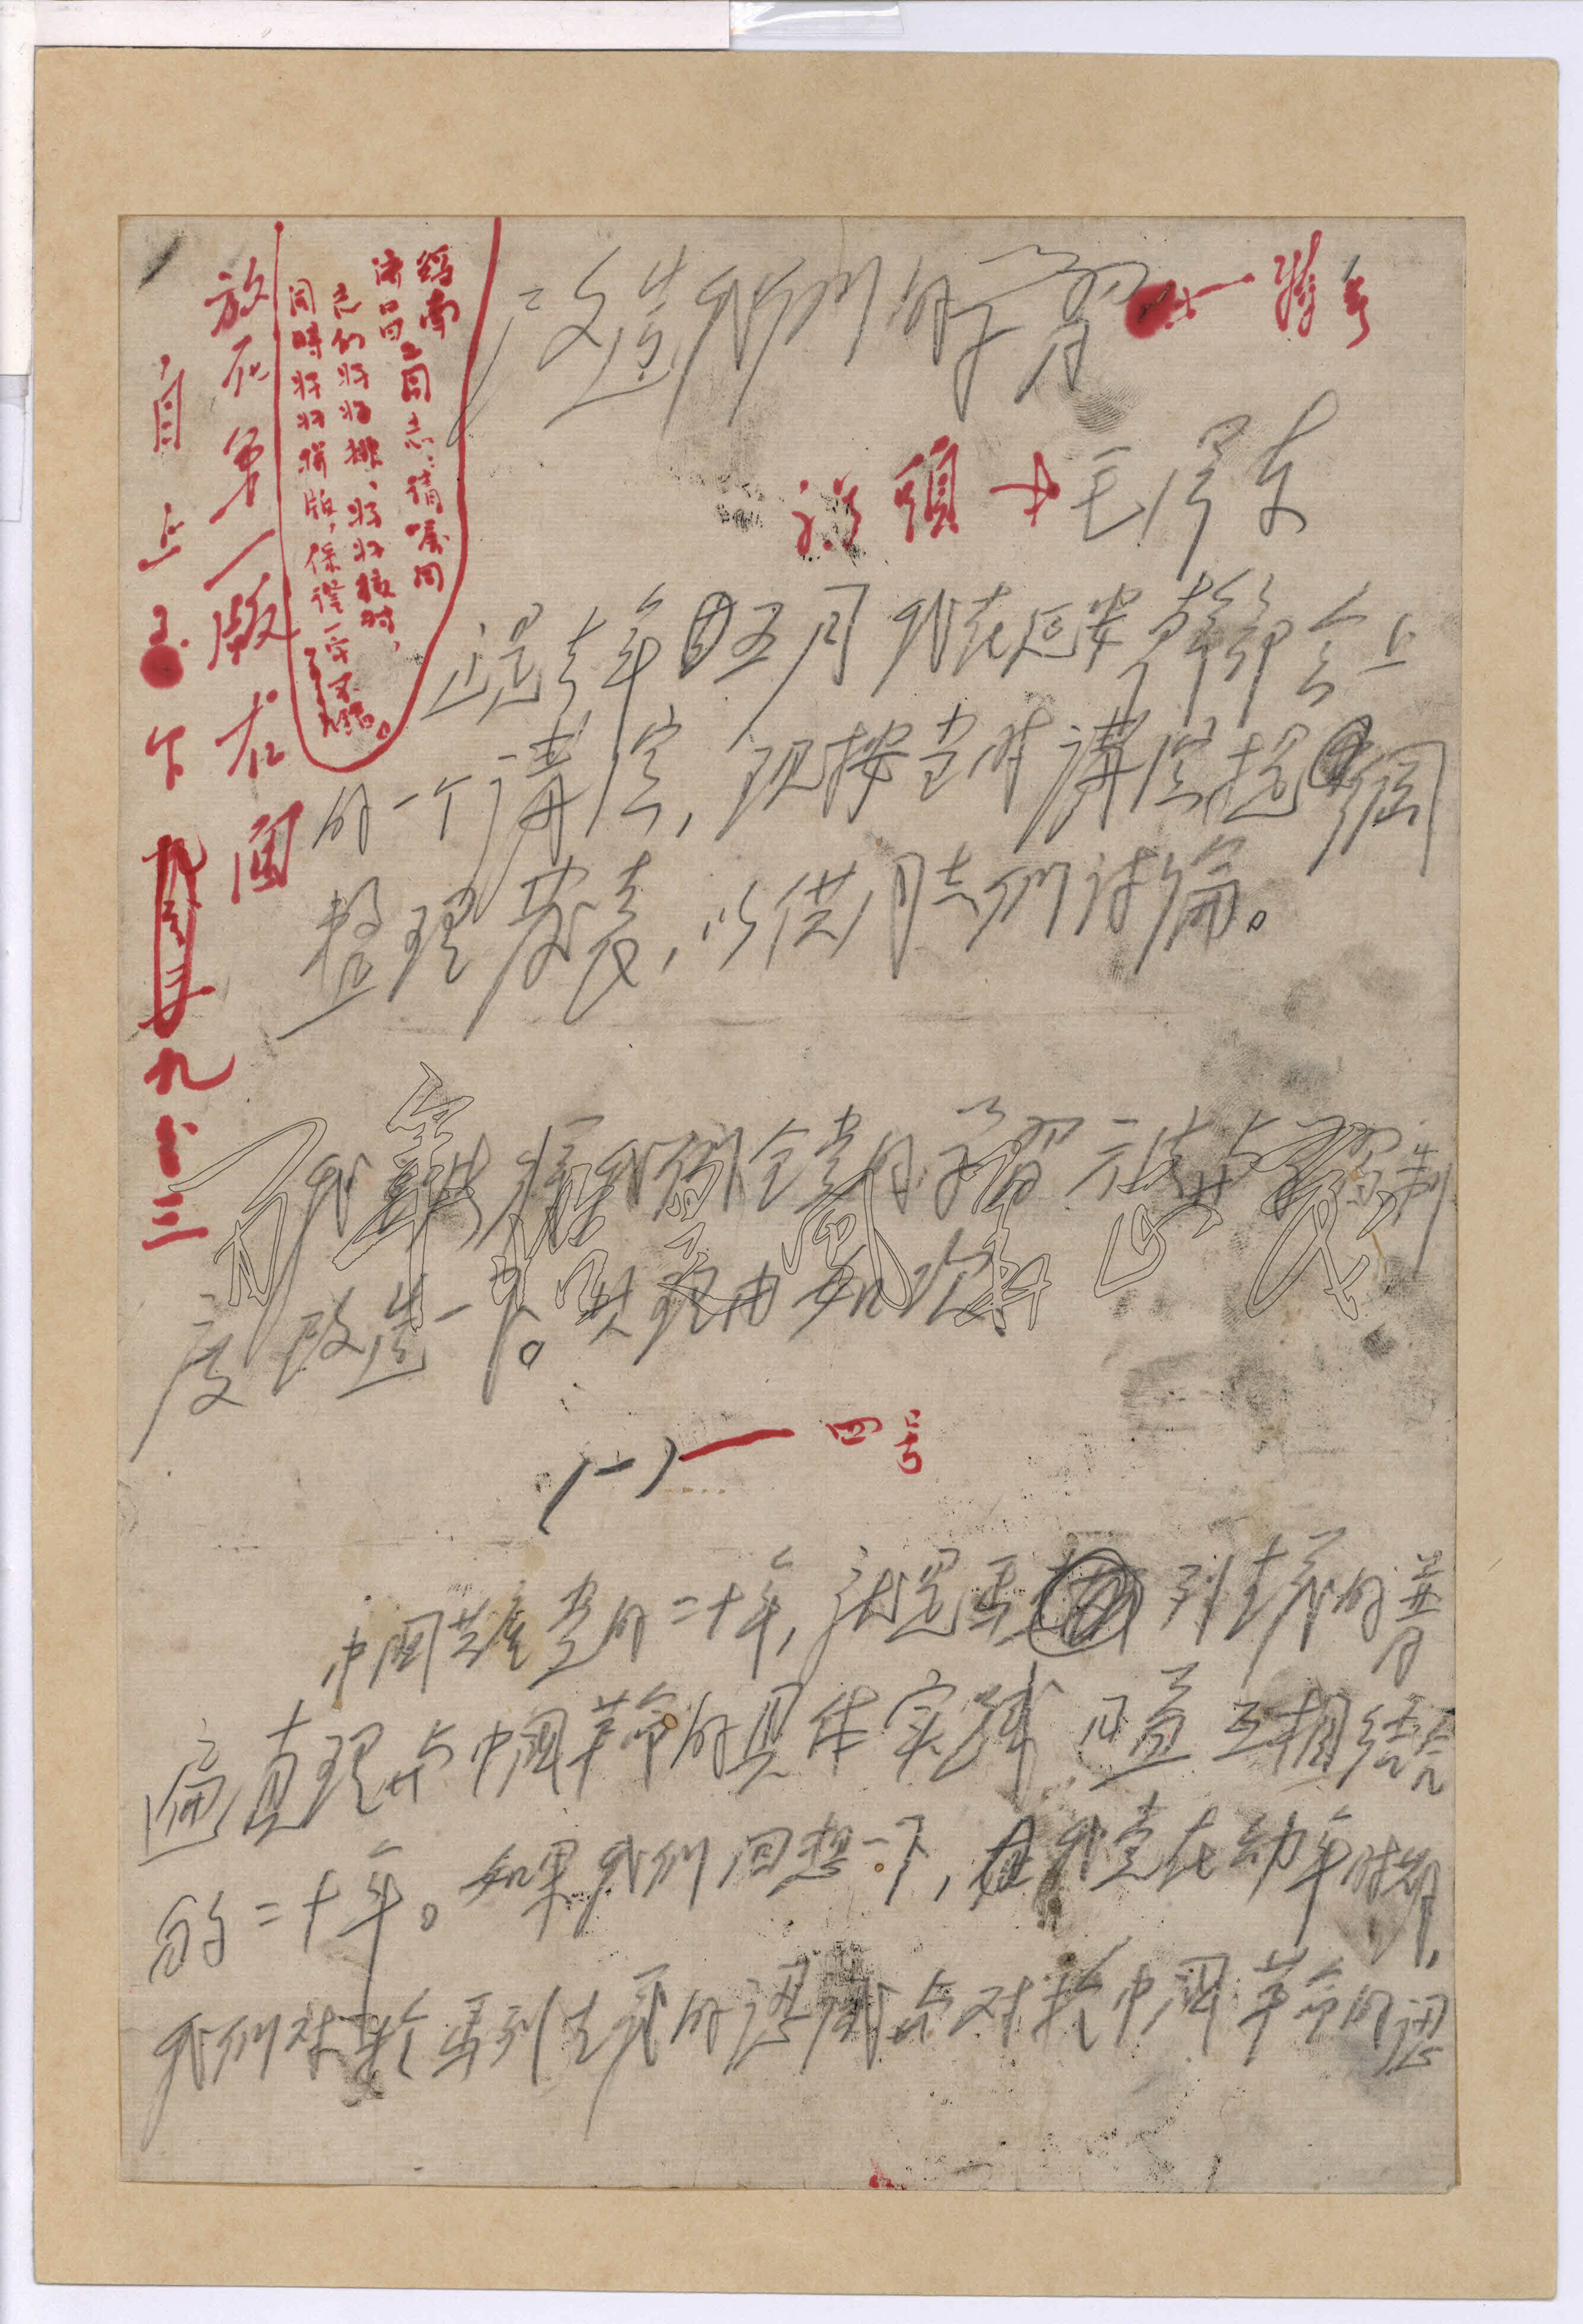 改造我们的学習 一 特号
毛泽东
这是去年五月我在延安幹部会上
的一个講演，现按当时講演提綱
整理发表，以供同志们讨論。
我主張将我们全党的学習方法与学習制
度改造一下。其理由如次：
（一） 四号
中国共产党的二十年，就是马列主义的普
遍真理与中国革命的具体实践日益互相结合
的二十年。如果我们回想一下，我党在幼年时期，
我们对於马列主义的認識与对於中国革命的認
同志：請嘱同
志们好好排、好好校对，
同時好好拼版，保證一字不錯。
放在第一版左面
自上至下
九
三